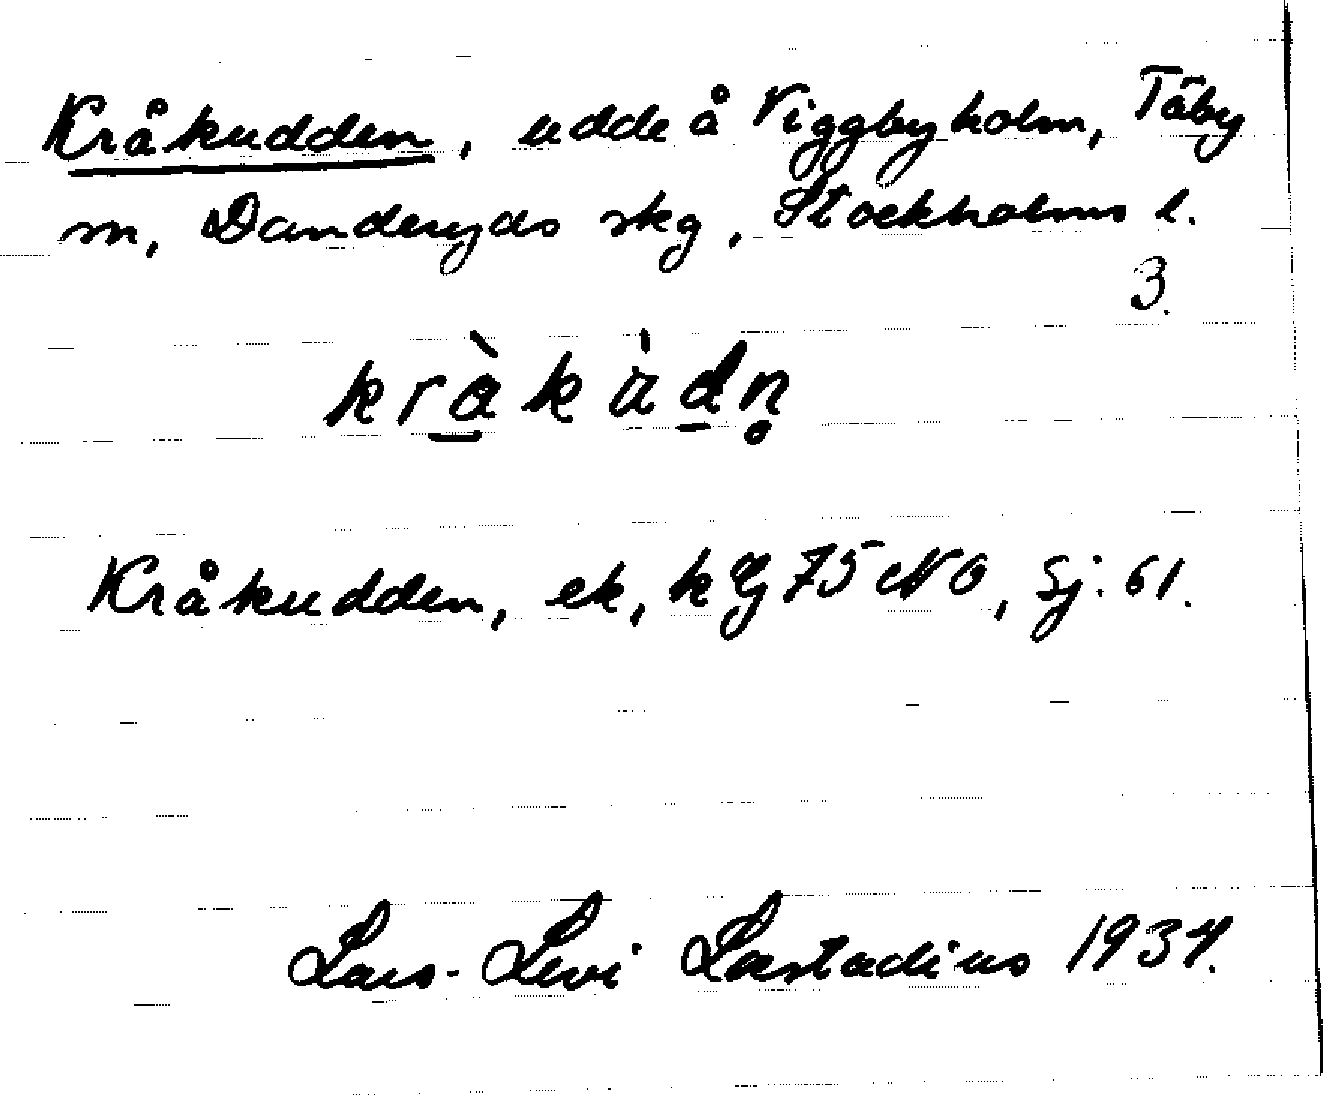 Kråkudden, udde å Viggbyholm, Täby
sn, Danderyds skg, Stockholms l.
3.
krà̱ku̇̀ḏn̥
Kråkudden, ek, kg 75 NO, Sj. 61.
Lars-Levi Læstadius 1937.